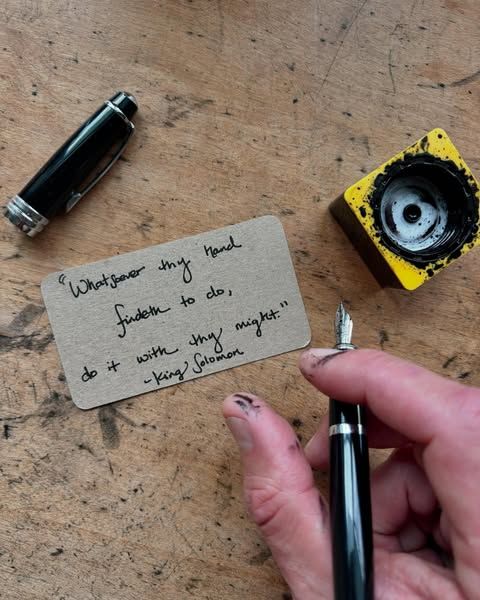 "Whatsoever thy Hand
findeth to do,
do it with thy might."
-King Solomon